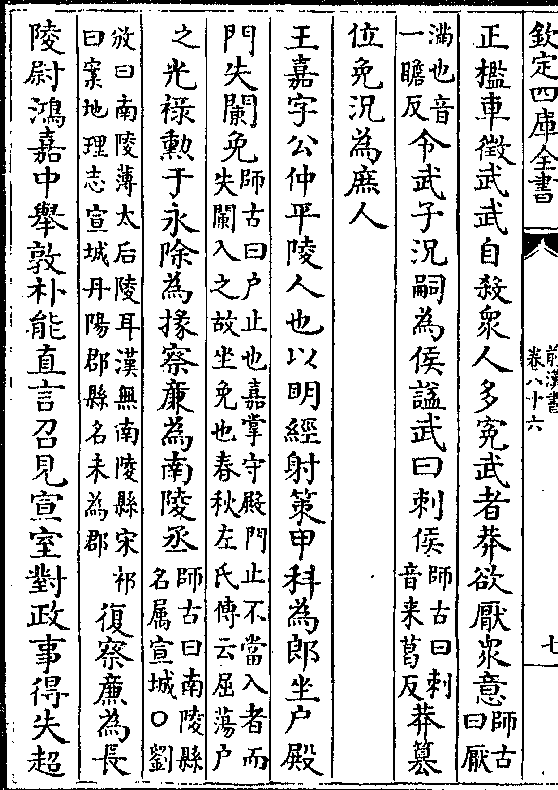 欽定四庫全書
前漢書
卷八十六
七
正檻車徵武武自殺衆人多寃武者莽欲厭衆意師古
曰厭
滿也音
一瞻反令武子況嗣為侯諡武曰刺侯師古曰刺
音来葛反莽簒
位免況為庶人
王嘉字公仲平陵人也以明經射策甲科為郎坐户殿
門失闌免師古曰户止也嘉掌守殿門止不當入者而
失闌入之故坐免也春秋左氏傳云屈蕩户
之光禄勲于永除為掾察廉為南陵丞師古曰南陵縣
名属宣城○劉
攽曰南陵薄太后陵耳漢無南陵縣宋祁
曰案地理志宣城丹陽郡縣名未為郡復察廉為長
陵尉鴻嘉中舉敦朴能直言召見宣室對政事得失超